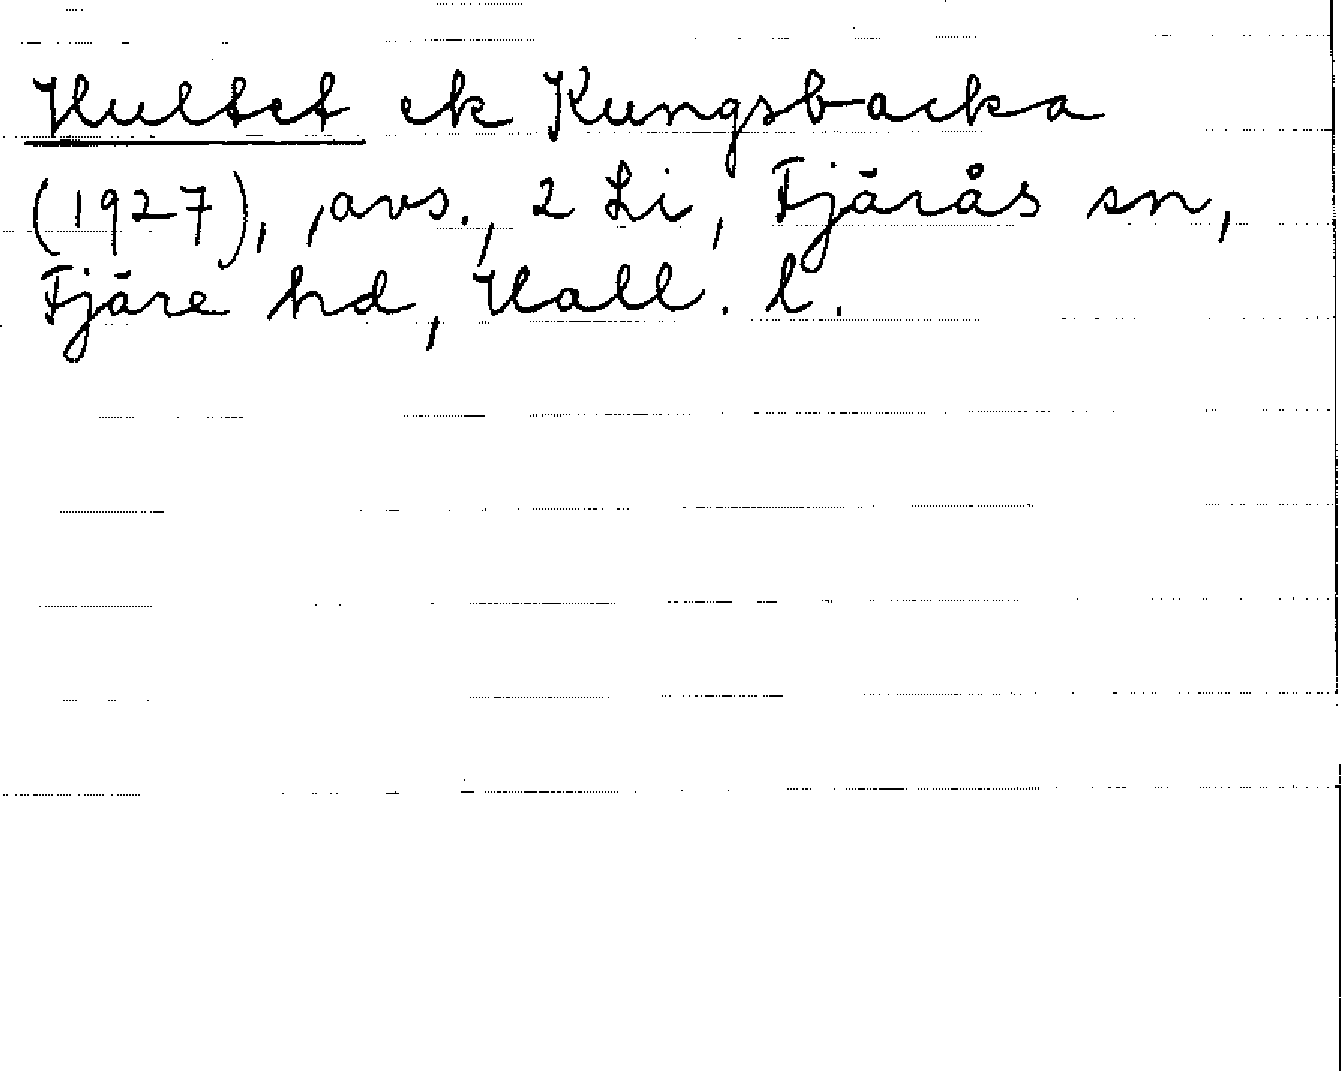 Hultet ek Kungsbacka
(1927), avs., 2 Li, Fjärås sn,
Fjäre hd, Hall. l.